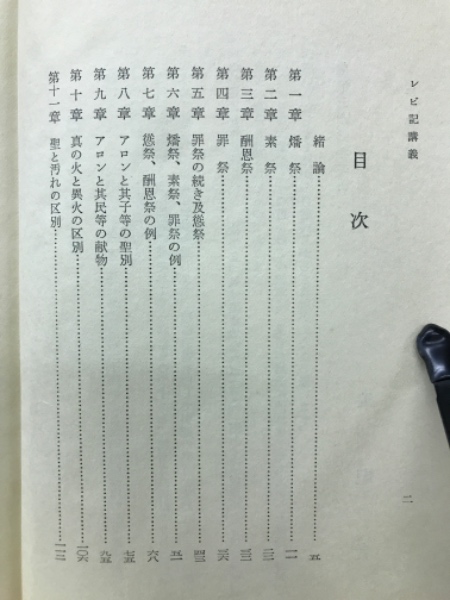 レビ記講義
二
目次
緒論……………………五
第一章 燔祭……………………一一
第二章 素祭……………………二二
第三章 酬恩祭……………………三二
第四章 罪祭……………………三六
第五章 罪祭の続き及愆祭……………………四三
第六章 燔祭、素祭、罪祭の例……………………五一
第七章 愆祭、酬恩祭の例……………………六八
第八章 アロンと其子等の聖別……………………七五
第九章 アロンと其民等の献物……………………九五
第十章 真の火と異火の区別……………………一〇六
第十一章 聖と汚れの区別……………………一一二